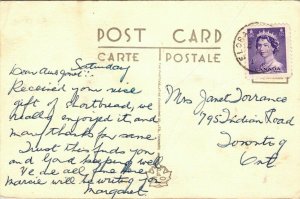 POST CARD
CARTE POSTALE
FLORA
CANADA
Saturday
Dear Aus
Received your nice
gift of shortbread, we
really enjoyed it, and
many thanks for same
Trust this finds you
and Gord keeping well
We are all fine here
Marcie will be writing you
Margaret.
Mrs Janet Torrance
795 Indian Road
Toronto 9
Ont